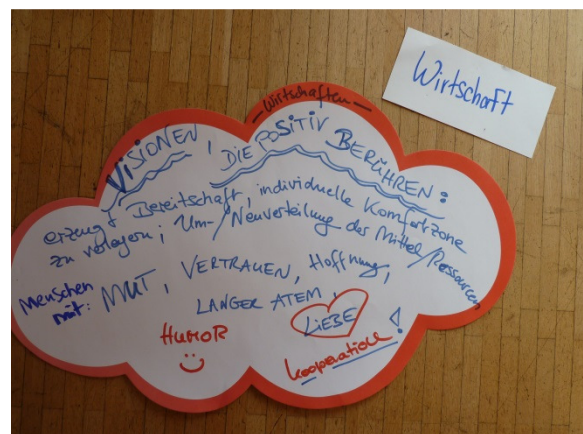 Wirtschaft
– Wirtschaften –
VISIONEN, DIE POSITIV BERÜHREN:
erzeugt Bereitschaft, individuelle Komfortzone
zu verlagern; Um-/Neuverteilung der Mittel/Ressourcen
Menschen
mit: MUT, VERTRAUEN, Hoffnung,
LANGER ATEM,
HUMOR
LIEBE
Kooperation!